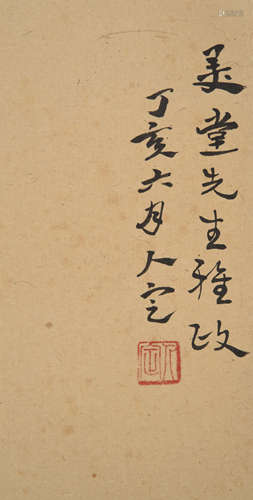 美堂先生雅政
丁亥六月人定